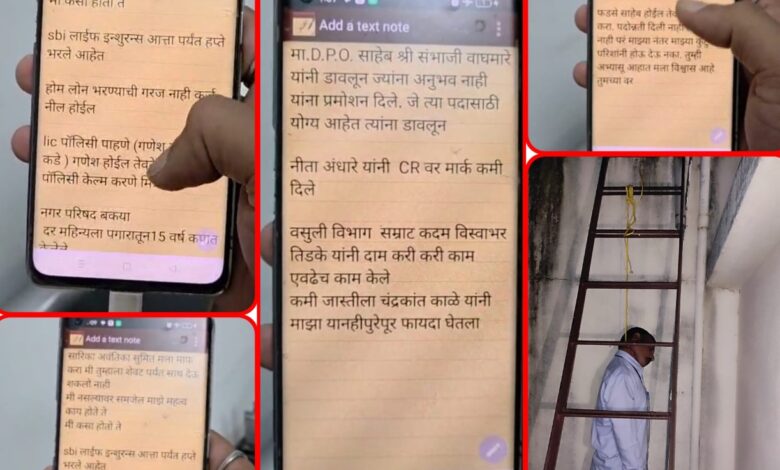 मी कसा होतो ते
sbi लाईफ इन्शुरन्स आत्ता पर्यंत हप्ते
भरले आहेत
होम लोन भरण्याची गरज नाही कर्ज
नील होईल
lic पॉलिसी पाहणे (गणेश
कडे ) गणेश होईल तेव
पॉलिसी केल्म करणे मि
नगर परिषद बकया
दर महिन्यला पगारातून15 वर्ष कणत
Add a text note
सारिका अवंतिका सुमित मला माफ
करा मी तुम्हाला शेवट पर्यंत साथ देऊ
शकलो नाही
मी नसल्यावर समजेल माझे महत्व
काय होते ते
मी कसा होतो ते
sbi लाईफ इन्शुरन्स आत्ता पर्यंत हप्ते
भरले आहेत
Add a text note
मा.D.P.O. साहेब श्री संभाजी वाघमारे
यांनी डावलून ज्यांना अनुभव नाही
यांना प्रमोशन दिले. जे त्या पदासाठी
योग्य आहेत त्यांना डावलून
नीता अंधारे यांनी CR वर मार्क कमी
दिले
वसुली विभाग सम्राट कदम विस्वाभर
तिडके यांनी दाम करी करी काम
एवढेच काम केले
कमी जास्तीला चंद्रकांत काळे यांनी
माझा यानहीपुरेपूर फायदा घेतला
फडसे साहेब होईल तेव
करा. पदोन्नती दिली नाही
नाही परं माझ्या नंतर माझ्या
परिशांनी होऊ देऊ नका. तुम्ही
अभ्यासू आहात मला विश्वास आहे
तुमच्या वर